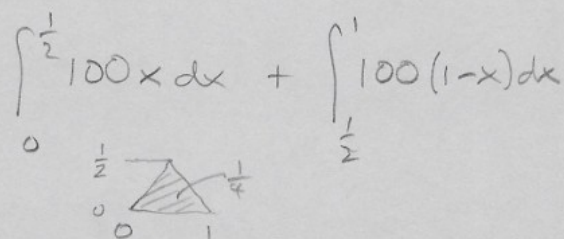 ∫₀^½ 100x dx + ∫_½^1 100(1-x)dx
½
¼
0
0 1